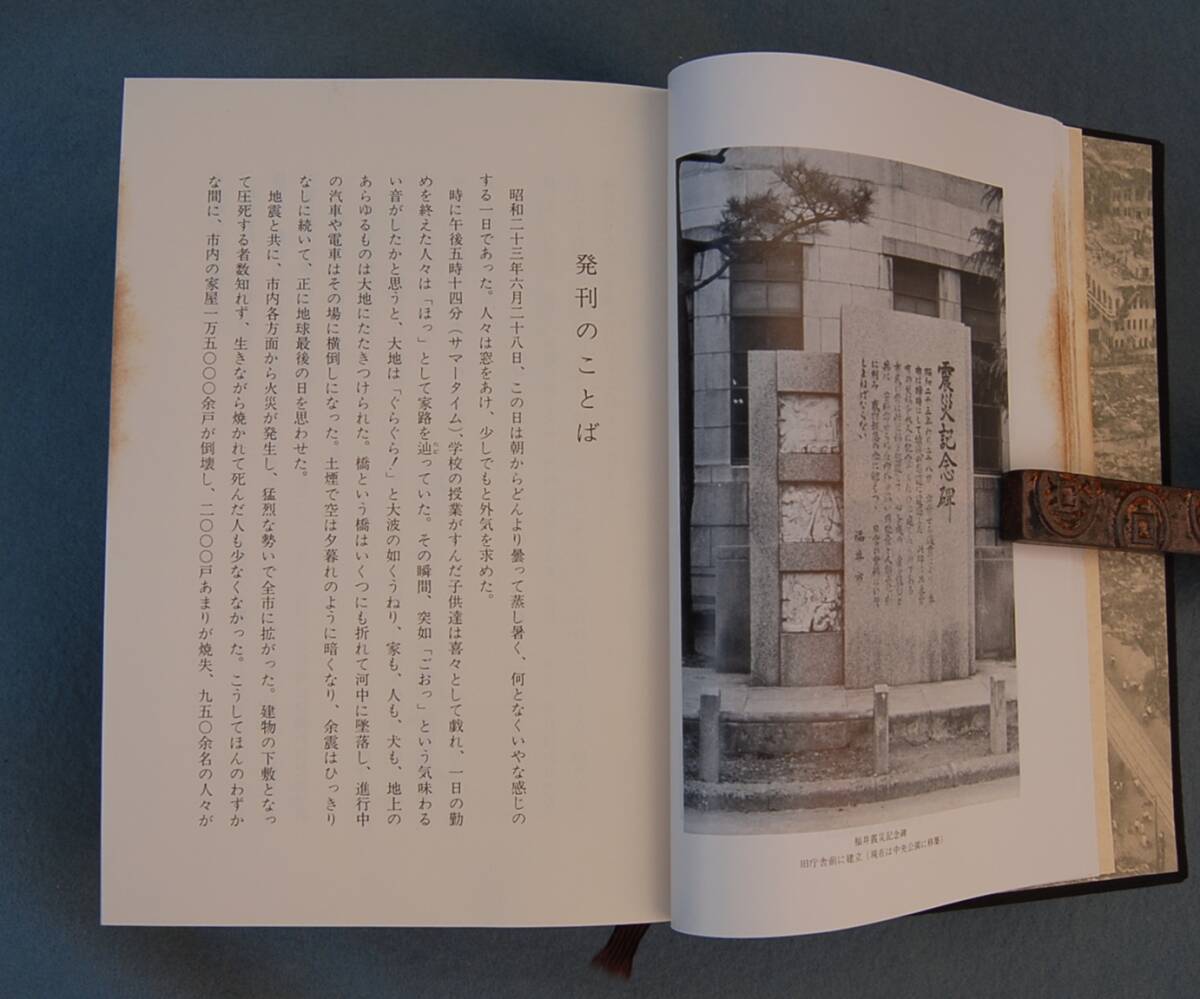 震災記念碑
福井市
福井震災記念碑
旧庁舎前に建立（現在は中央公園に移築）
発刊のことば
昭和二十三年六月二十八日、この日は朝からどんより曇って蒸し暑く、何となくいやな感じの
する一日であった。人々は窓をあけ、少しでもと外気を求めた。
時に午後五時十四分（サマータイム）、学校の授業がすんだ子供達は喜々として戯れ、一日の勤
めを終えた人々は「ほっ」として家路を辿っていた。その瞬間、突如「ごおっ」という気味わる
い音がしたかと思うと、大地は「ぐらぐら！」と大波の如くうねり、家も、人も、犬も、地上の
あらゆるものは大地にたたきつけられた。橋という橋はいくつにも折れて河中に墜落し、進行中
の汽車や電車はその場に横倒しになった。土煙で空は夕暮れのように暗くなり、余震はひっきり
なしに続いて、正に地球最後の日を思わせた。
地震と共に、市内各方面から火災が発生し、猛烈な勢いで全市に拡がった。建物の下敷となっ
て圧死する者数知れず、生きながら焼かれて死んだ人も少なくなかった。こうしてほんのわずか
な間に、市内の家屋一万五〇〇〇余戸が倒壊し、二〇〇〇戸あまりが焼失、九五〇余名の人々が